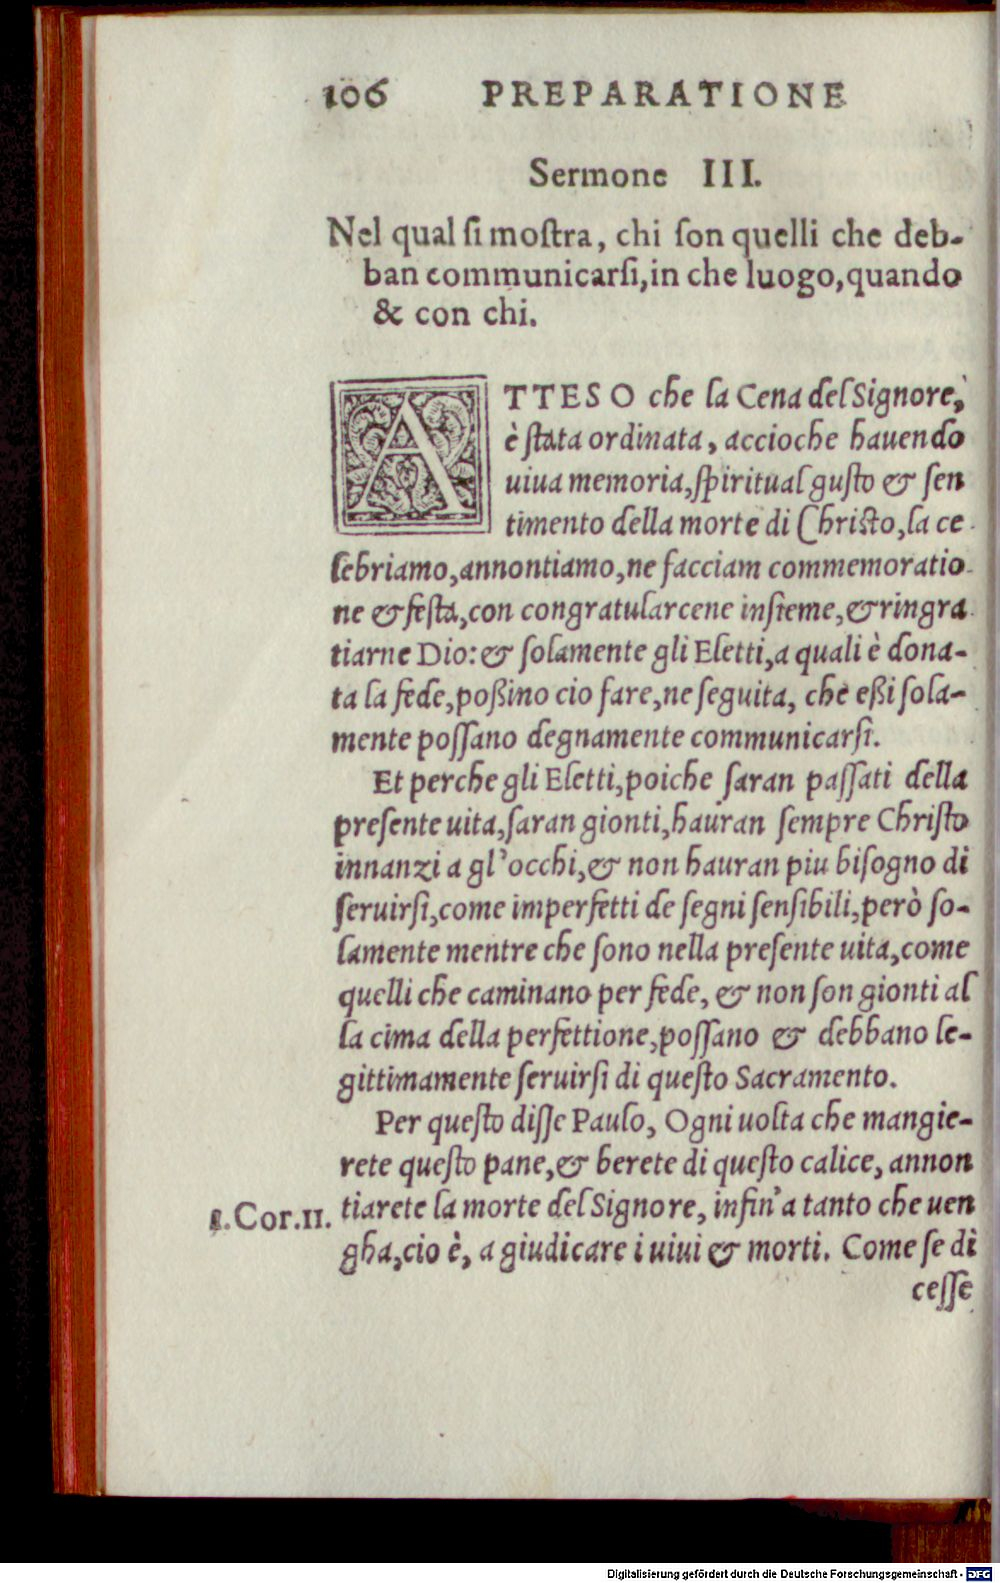 106 PREPARATIONE
Sermone III.
Nel qual si mostra, chi son quelli che deb-
ban communicarsi, in che luogo, quando
& con chi.
ATTESO che la Cena del Signore,
è stata ordinata, accioche hauendo
uiua memoria, spiritual gusto & sen
timento della morte di Christo, la ce-
lebriamo, annontiamo, ne facciam commemoratio-
ne & festa, con congratularcene insieme, & ringra-
tiarne Dio: & solamente gli Eletti, a quali è dona-
ta la fede, poßino cio fare, ne seguita, che eßi sola-
mente possano degnamente communicarsi.
Et perche gli Eletti, poiche saran passati della
presente uita, saran gionti, hauran sempre Christo
innanzi a gl'occhi, & non hauran piu bisogno di
seruirsi, come imperfetti de segni sensibili, però so-
lamente mentre che sono nella presente uita, come
quelli che caminano per fede, & non son gionti al
la cima della perfettione, possano & debbano le-
gittimamente seruirsi di questo Sacramento.
Per questo disse Paulo, Ogni uolta che mangie-
rete questo pane, & berete di questo calice, annon
1.Cor.11. tiarete la morte del Signore, infin'a tanto che uen
gha, cio è, a giudicare i uiui & morti. Come se di
cesse
Digitalisierung gefördert durch die Deutsche Forschungsgemeinschaft - DFG